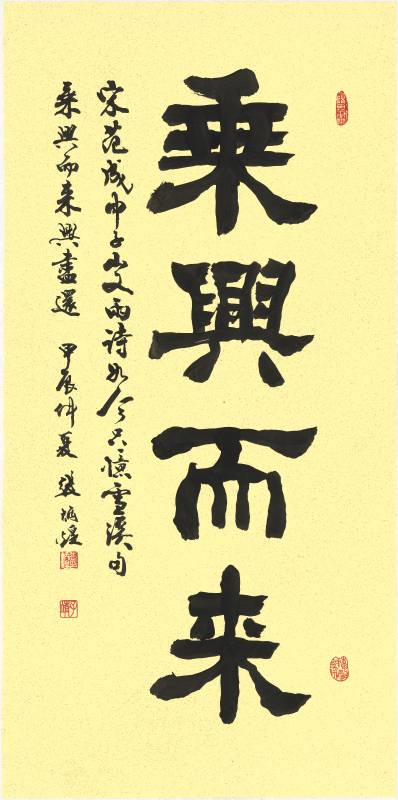 乘興而来
宋范成子山雨詩如今只憶雪溪句
乘興而来興盡還 甲辰仲夏 張炳煌